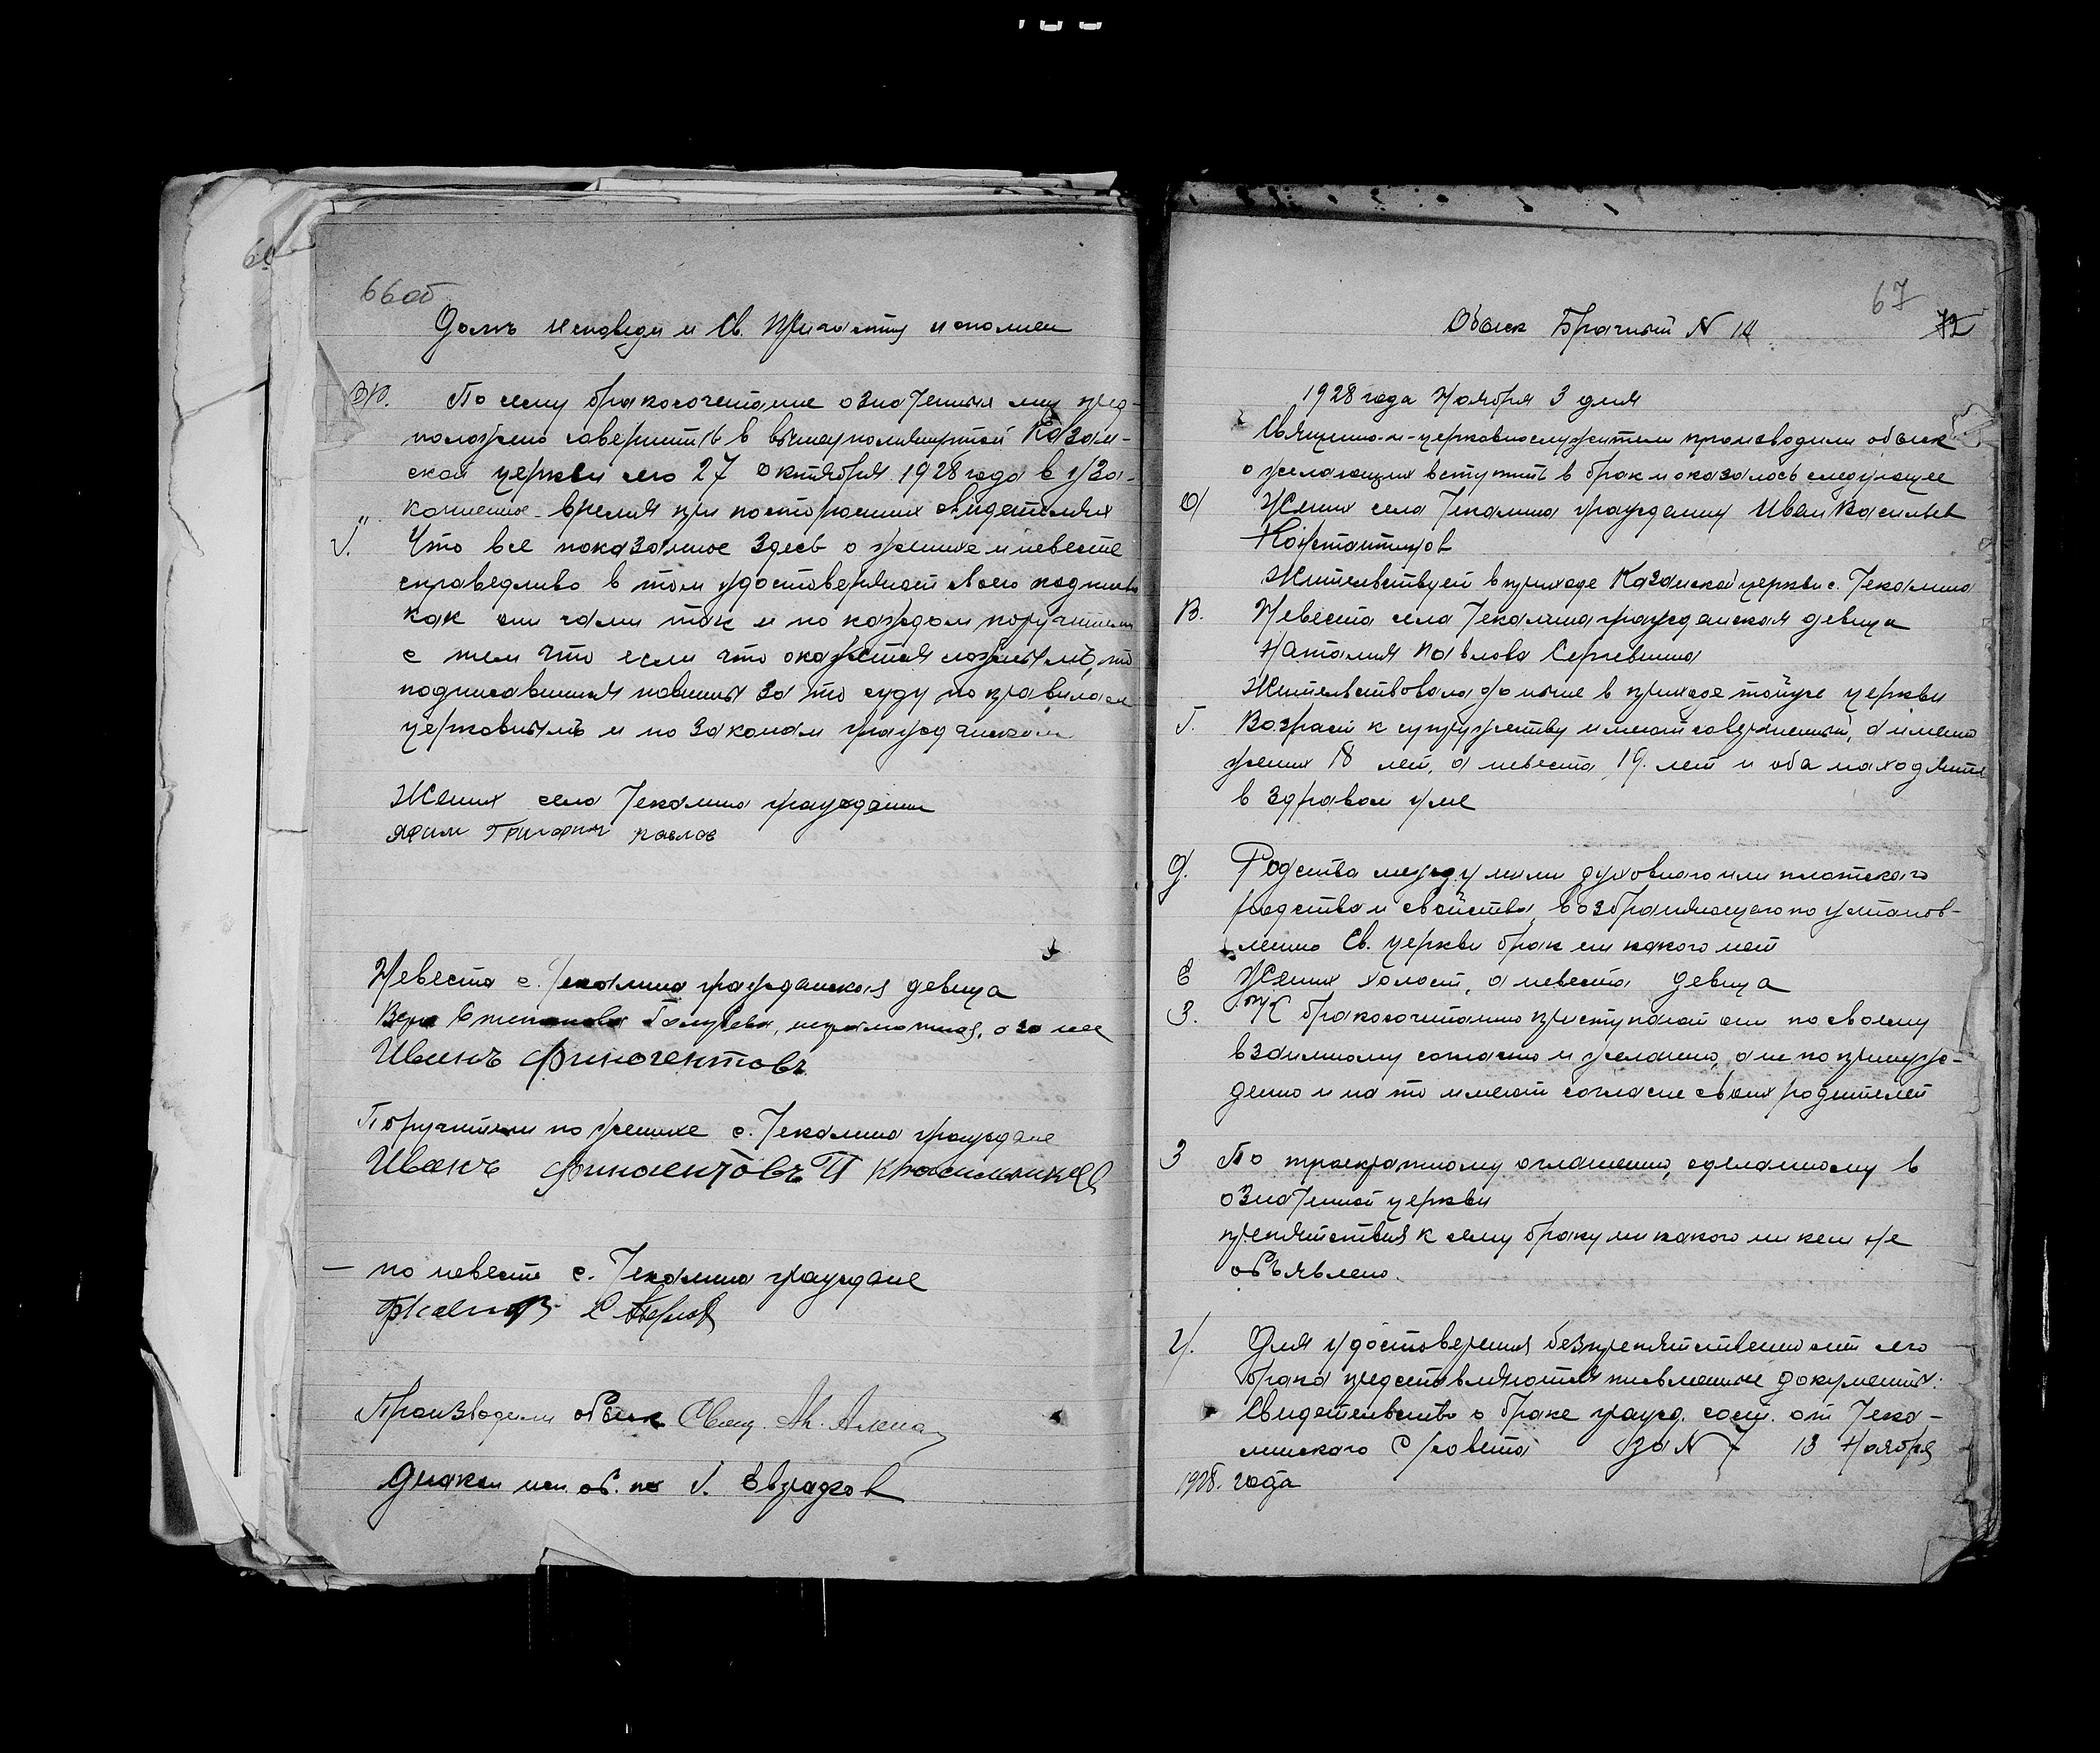 66об
Долг исповеди и Св. Причастия исполнен
Ю. По сему бракосочетание означенных лиц пред-
положено совершить в вышеупомянутой Казан-
ской церкви сего 27 октября 1928 года в уза-
коненное время при посторонних свидетелях
Что все показанное здесь о женихе и невесте
справедливо в том удостоверяют своею подписью
как они сами так и по каждом поручители
с тем что если что окажется ложным, то
подписавшиеся повинны за то суду по правилам
церковным и по законам гражданским
Жених села Текалина гражданин
Яфим Григории Павлов
Невеста с. Текалина гражданская девица
Вера Степанова Голубева, неграмотная, а за нее
Иванъ Финогентовъ
Поручители по женихе с. Текалина граждане
Иванъ Финогентовъ П Красильников
— по невесте с. Текалина граждане
Производили обыск Свящ.
Диакон исп. об. пс
67
72
Обыск Брачный N 14
1928 года Ноября 3 дня
Священно-и-церковнослужители производили обыск
о желающих вступить в брак и оказалось следующее
а) Жених села Текалина гражданин Иван Васильев
Константинов
Жительствует в приходе Казанской церкви с. Текалина
В. Невеста села Текалина гражданская девица
Наталия Павлова Сергевнина
Жительствовала доныне в приходе той же церкви
Г. Возраст к супружеству имеют совершенный, а имено
жених 18 лет, а невеста 19. лет и оба находятся
в здравом уме
Д. Родства между ими духовного или плотского
родства и свойства, возбраняющего по установ-
лению Св. церкви брак ни какого нет
Е Жених холост, а невеста девица
З. К бракосочетанию приступают они по своему
взаимному согласию и желанию, а не по принуж-
дению и на то имеют согласие своих родителей
З По троекратному оглашению, сделанному в
означенной церкви
препятствия к сему браку ни какого ни кем не
объявлено.
И. Для удостоверения безпрепятственности сего
брака представляются письменные документы:
Свидетельство о браке гражд. сост. от Тека-
линского С/совета за N 7 13 Ноября
1928. года